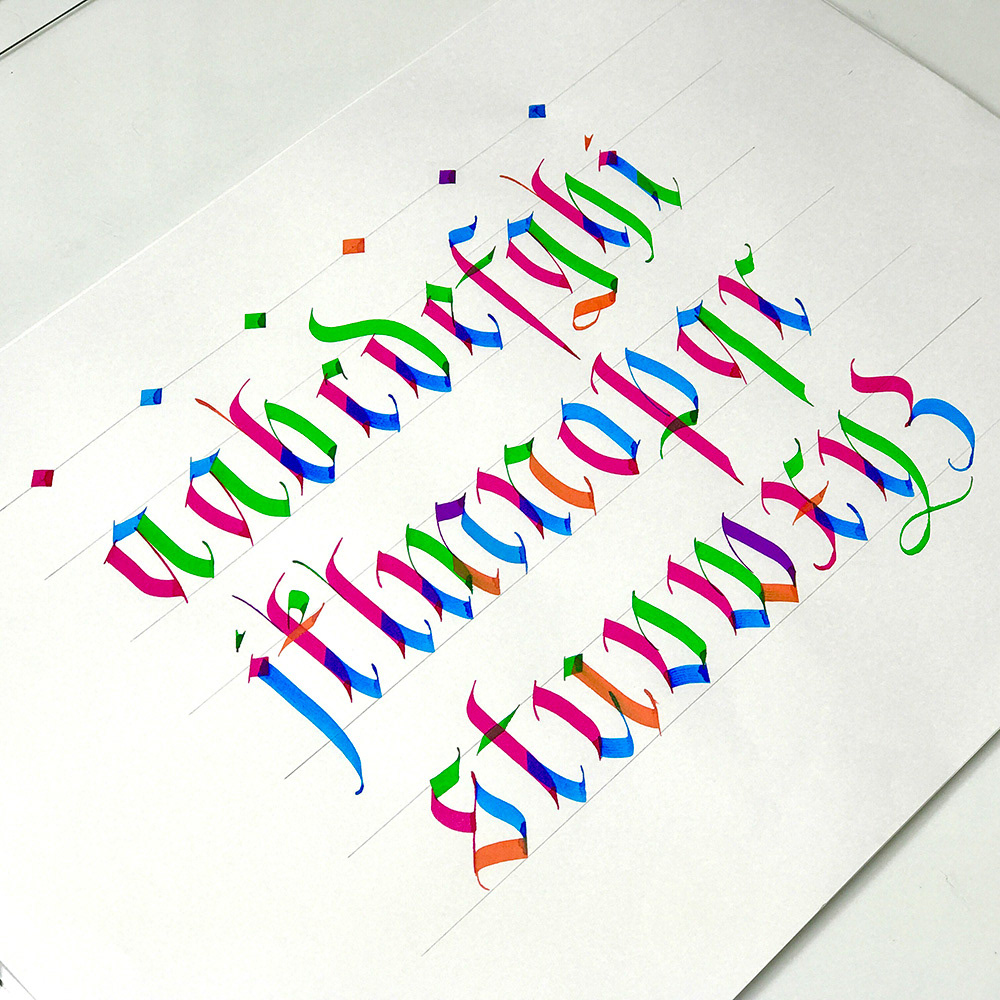 aabcdefghi
jklmnopqr
stuvwxyz